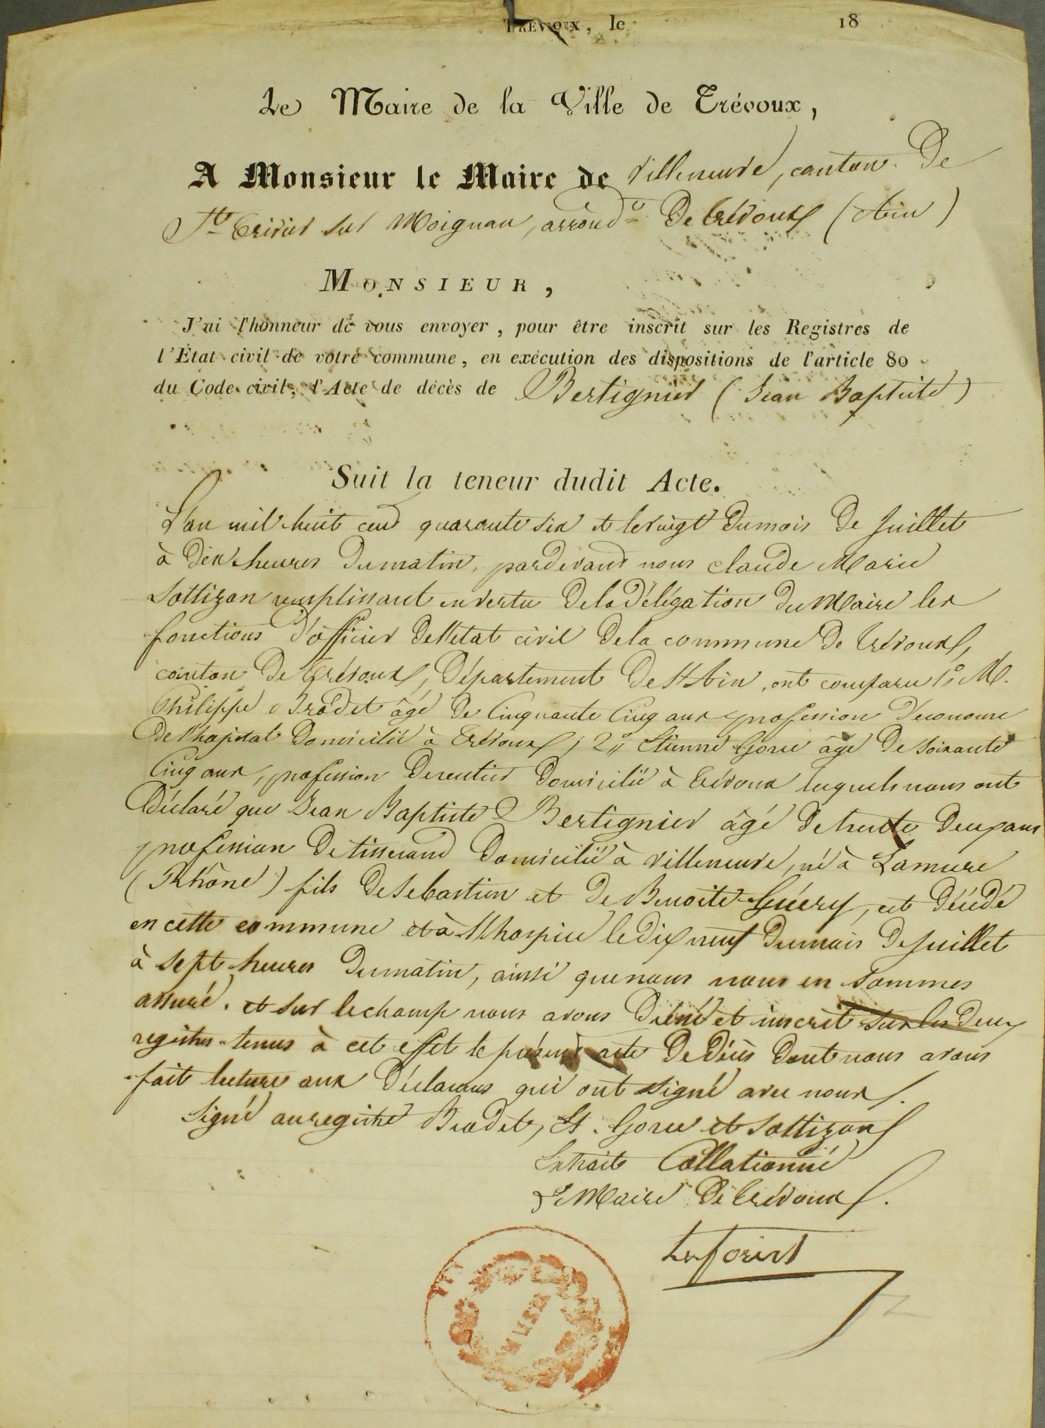 Trévoux, le 18
Le Maire de la Ville de Trévoux,
A Monsieur le Maire de Villeneuve, canton De
St Trivier sur Moignan, arrond.t De Trévoux (Ain)
MONSIEUR,
J'ai l'honneur de vous envoyer, pour être inscrit sur les Registres de
l'État civil de votre commune, en exécution des dispositions de l'article 80
du Code civil, l'Acte de décès de Bertignier (Jean Baptiste)
Suit la teneur dudit Acte.
L'an mil huit cent quarante six et le vingt Du mois De Juillet
à dix heures Du matin, pardevant nous Claude Marie
Sottizon remplissant en vertu De la Délégation Du Maire les
fonctions d'officier De l'état civil De la commune De Trévoux,
canton De Trévoux, Département De l'Ain, ont comparu 1° M.
Philippe Brodet âgé De Cinquante Cinq ans profession D'econome
De l'hopital Domicilié à Trévoux, 2° Etienne Gorce âgé De Soixante
Cinq ans, profession De rentier Domicilié à Trévoux lesquels nous ont
Déclaré que Jean Baptiste Bertignier âgé De trente Deux ans
profession De tisserand Domicilié à Villeneuve, né à Lamure
(Rhône) fils De Sebastien et De Benoite Guéry, est Décédé
en cette commune et à l'hospice le Dix neuf Du mois De Juillet
à Sept heures Du matin, ainsi que nous nous en Sommes
assuré. et sur le champ nous avons Dréssé et inscrit sur les Deux
registres tenus à cet effet le présent acte De Décès Dont nous avons
fait lecture aux Déclarans qui ont signé avec nous.
Signé au registre Brodet, Et. Gorce et Sottizon
Extrait Collationné
Le Maire De Trévoux.